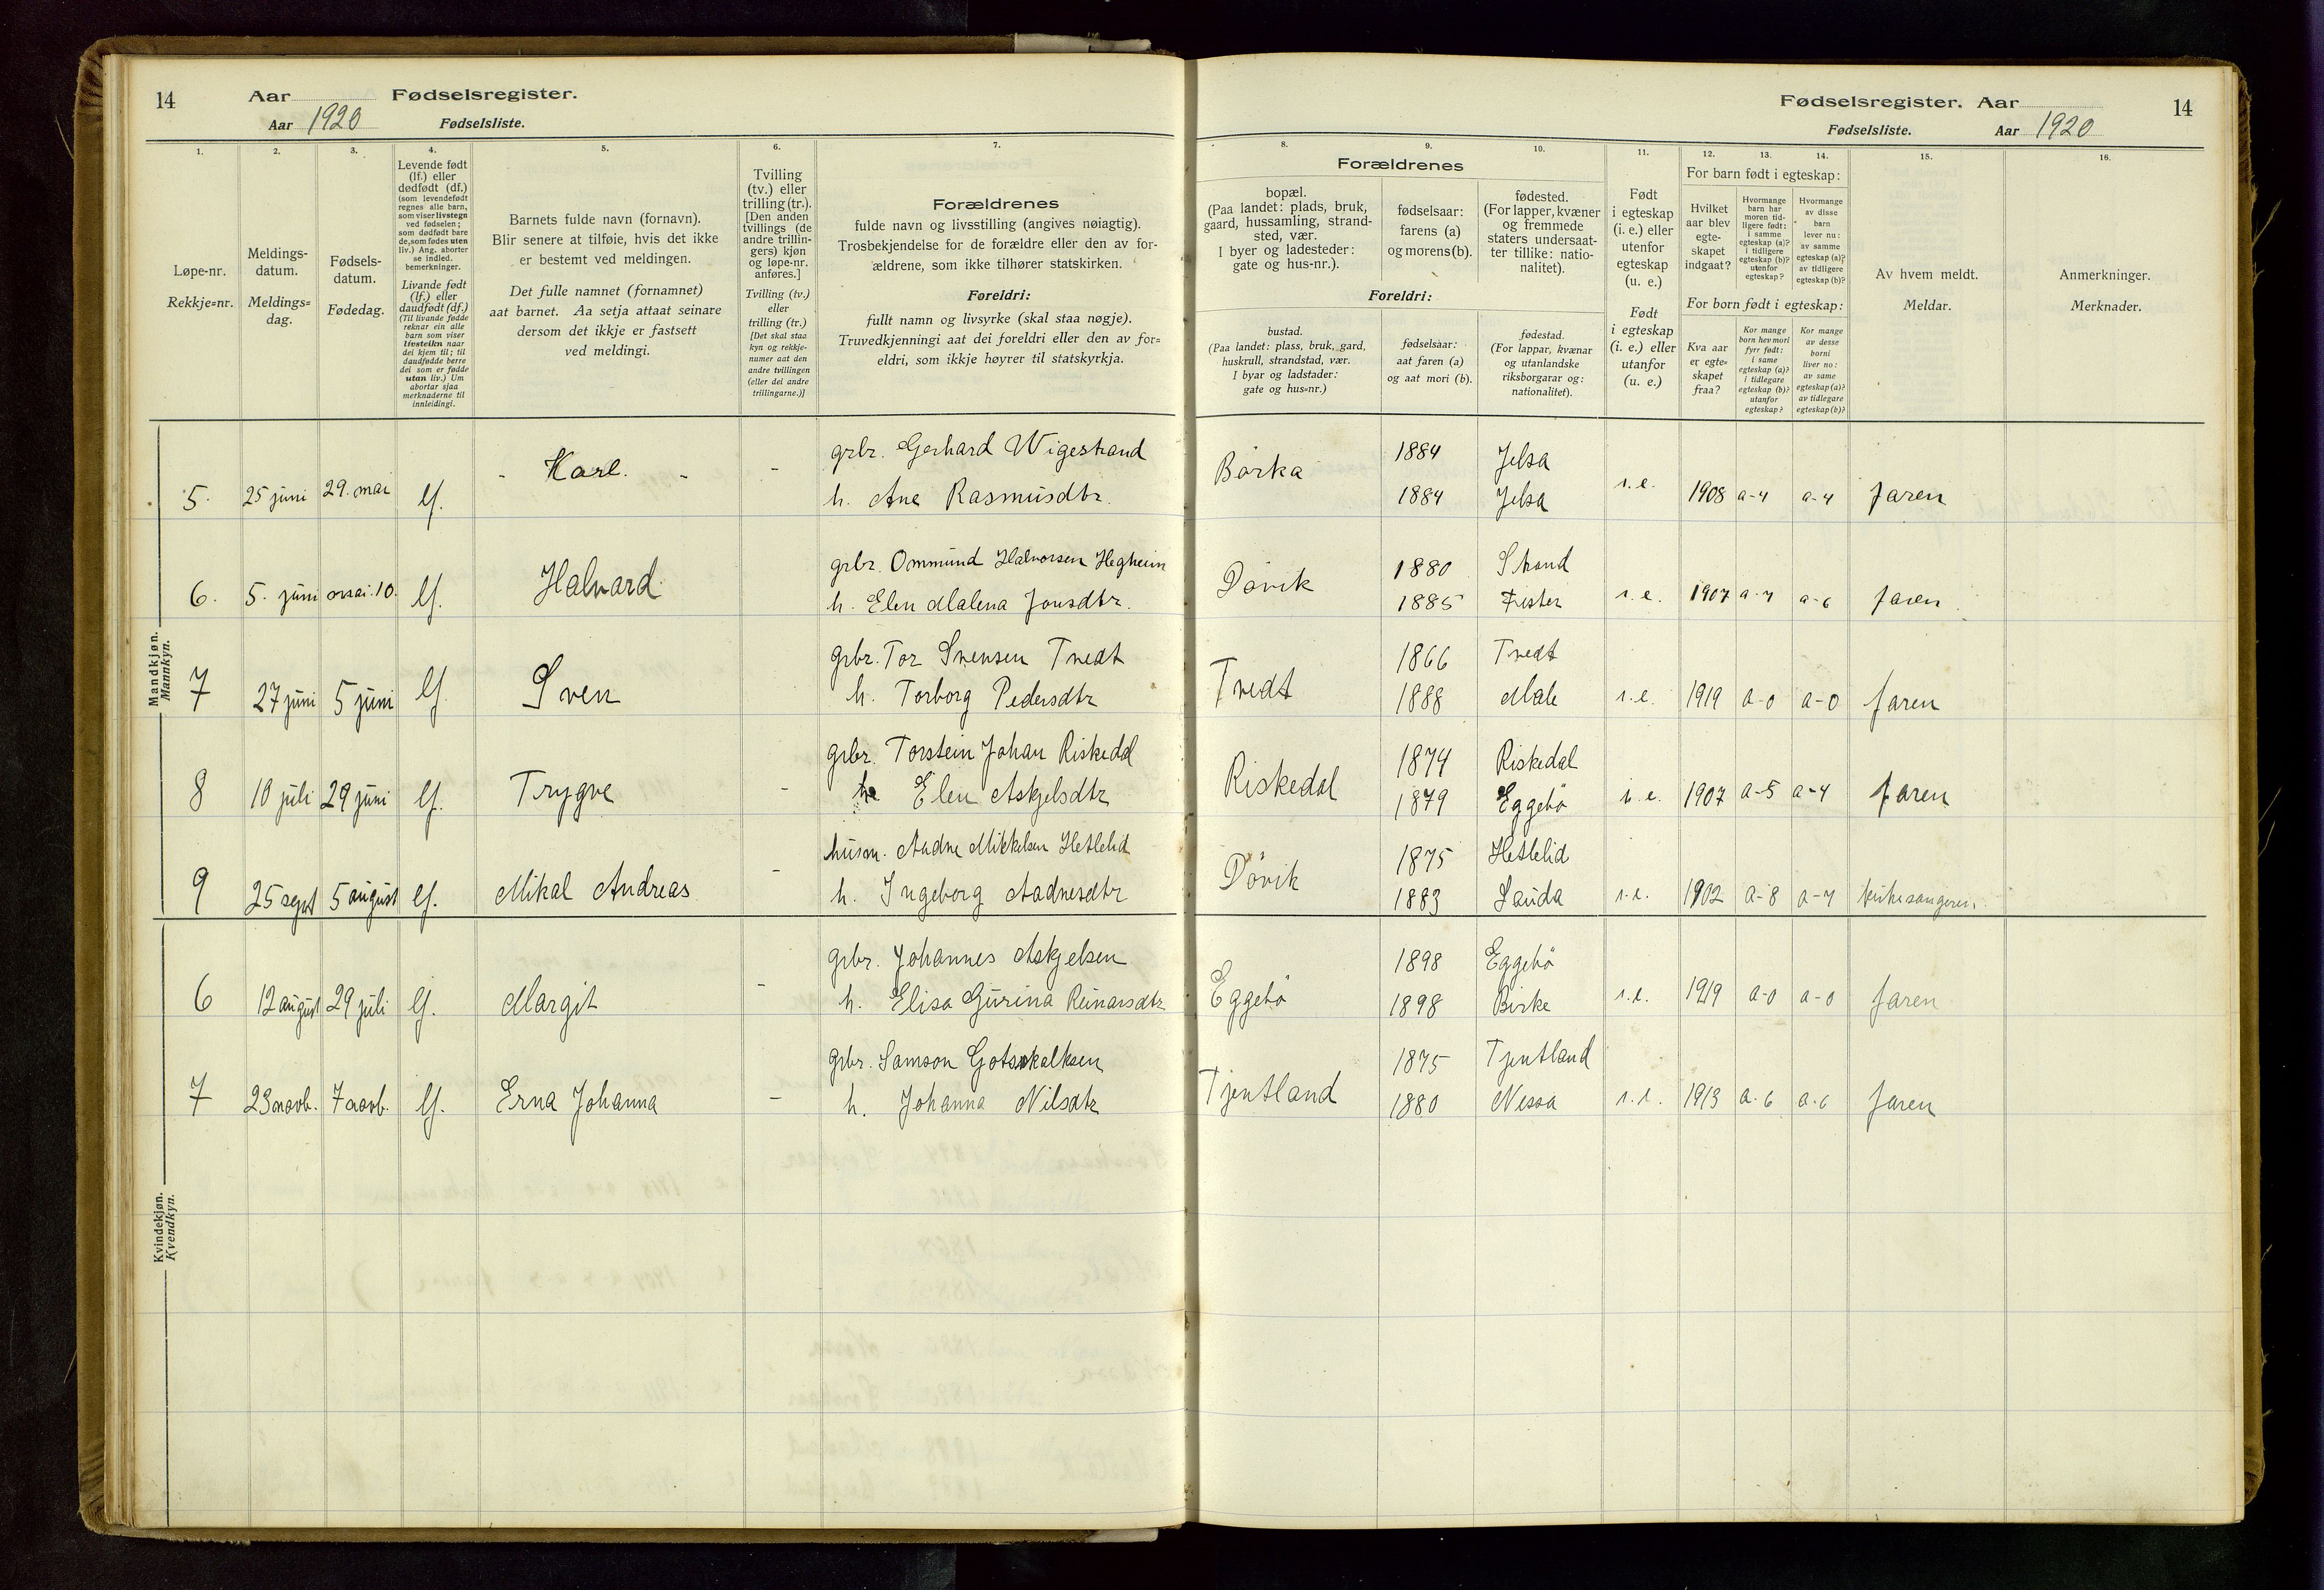 14
Aar Fødselsregister.
Aar 1920 Fødselsliste.
1.
2.
3.
4.
5.
6.
7.
Løpe-nr.
Rekkje=nr.
Meldings-
datum.
Meldings=
dag.
Fødsels-
datum.
Fødedag.
Levende født
(lf.) eller
dødfødt (df.)
(som levendefødt
regnes alle barn,
som viser livstegn
ved fødselen;
som dødfødt bare
de, som fødes uten
liv.) Ang. aborter
se indled.
bemerkninger.
Livande født
(lf.) eller
daudfødt (df.)
(Til livande fødde
reknar ein alle
barn som viser
livsteikn naar
dei kjem til; til
daudfødde berre
dei som er fødde
utan liv.) Um
abortar sjaa
merknaderne til
innleidingi.
Barnets fulde navn (fornavn).
Blir senere at tilføie, hvis det ikke
er bestemt ved meldingen.
Det fulle namnet (fornamnet)
aat barnet. Aa setja attaat seinare
dersom det ikkje er fastsett
ved meldingi.
Tvilling
(tv.) eller
trilling (tr.).
[Den anden
tvillings (de
andre trillin-
gers) kjøn
og løpe-nr.
anføres.]
Tvilling (tv.)
eller
trilling (tr.)
[Det skal staa
kyn og rekkje-
numer aat den
andre tvillingen
(eller dei andre
trillingarne.)]
Forældrenes
fulde navn og livsstilling (angives nøiagtig).
Trosbekjendelse for de forældre eller den av for-
ældrene, som ikke tilhører statskirken.
Foreldri:
fullt namn og livsyrke (skal staa nøgje).
Truvedkjenningi aat dei foreldri eller den av for=
eldri, som ikkje høyrer til statskyrkja.
Mandkjøn.
Mannkyn.
5. 25 juni 29. mai lf. - Karl. - - grbr. Gerhard Wigestrand
h. Ane Rasmusdtr.
6. 5. juni mai. 10. lf. Halvard grbr. Ommund Halvorsen Hegheim
h. Elen Malena Jonsdtr.
7 27 juni 5 juni lf. Sven grbr. Tor Svensen Tvedt
h. Torborg Pedersdtr
8 10 juli 29 juni lf. Trygve - grbr. Torstein Johan Riskedal
h. Elen Askjelsdtr
9 25 sept 5 august lf. Mikal Andreas - husm. Aadne Mikkelsen Hetlelid
h. Ingeborg Aadnesdtr
Kvindekjøn.
Kvendkyn.
6 12 august 29 juli lf. Margit - grbr. Johannes Askjelsen
h. Elisa Gurina Reinarsdtr
7 23 novb. 7 novb. lf. Erna Johanna - grbr. Samson Gotskalksen
h. Johanna Nilsdtr
Fødselsregister. Aar
14
Fødselsliste. Aar 1920
8.
9.
10.
11.
12.
13.
14.
15.
16.
Forældrenes
bopæl.
(Paa landet: plads, bruk,
gaard, hussamling, strand-
sted, vær.
I byer og ladesteder:
gate og hus-nr.).
fødselsaar:
farens (a)
og morens (b).
fødested.
(For lapper, kvæner
og fremmede
staters undersaat-
ter tillike: natio-
nalitet).
Foreldri:
bustad.
(Paa landet: plass, bruk, gard,
huskrull, strandstad, vær.
I byar og ladstader:
gate og hus-nr.)
fødselsaar:
aat faren (a)
og aat mori (b).
fødestad.
(For lappar, kvænar
og utanlandske
riksborgarar og:
nationalitet).
Født
i egteskap
(i. e.) eller
utenfor
egteskap
(u. e.)
Født
i egteskap
(i. e.) eller
utanfor
(u. e.)
For barn født i egteskap:
Hvilket
aar blev
egte-
skapet
indgaat?
Hvormange
barn har
moren tid-
ligere født:
i samme
egteskap (a)?
i tidligere
egteskap (b)?
utenfor
egteskap?
Hvormange
av disse
barn
lever nu:
av samme
egteskap (a)?
av tidligere
egteskap (b)?
For born født i egteskap:
Kva aar
er egte=
skapet
fraa?
Kor mange
born hev mori
fyrr født:
i same
egteskap (a)?
i tidlegare
egteskap (b)?
utanfor
egteskap?
Kor mange
av desse
borni
liver no:
av same
egteskap (a)?
av tidlegare
egteskap (b)?
Av hvem meldt.
Meldar.
Anmerkninger.
Merknader.
Børka 1884 Jelsa
1884 Jelsa i.e. 1908 a-4 a-4 faren
Døvik 1880 Strand
1885 Fister i.e. 1907 a-7 a-6 faren.
Tvedt 1866 Tvedt
1888 Male i.e. 1919 a-0 a-0 faren
Riskedal 1874 Riskedal
1879 Eggebö i.e. 1907 a-5 a-4 faren
Dövik 1875 Hetlelid
1883 Sauda i.e. 1902 a-8 a-7 kirkesangeren.
Eggebö 1898 Eggebö
1898 Birke i.e. 1919 a-0 a-0 faren
Tjentland 1875 Tjentland
1880 Nessa i.e. 1913 a.6 a.6 faren